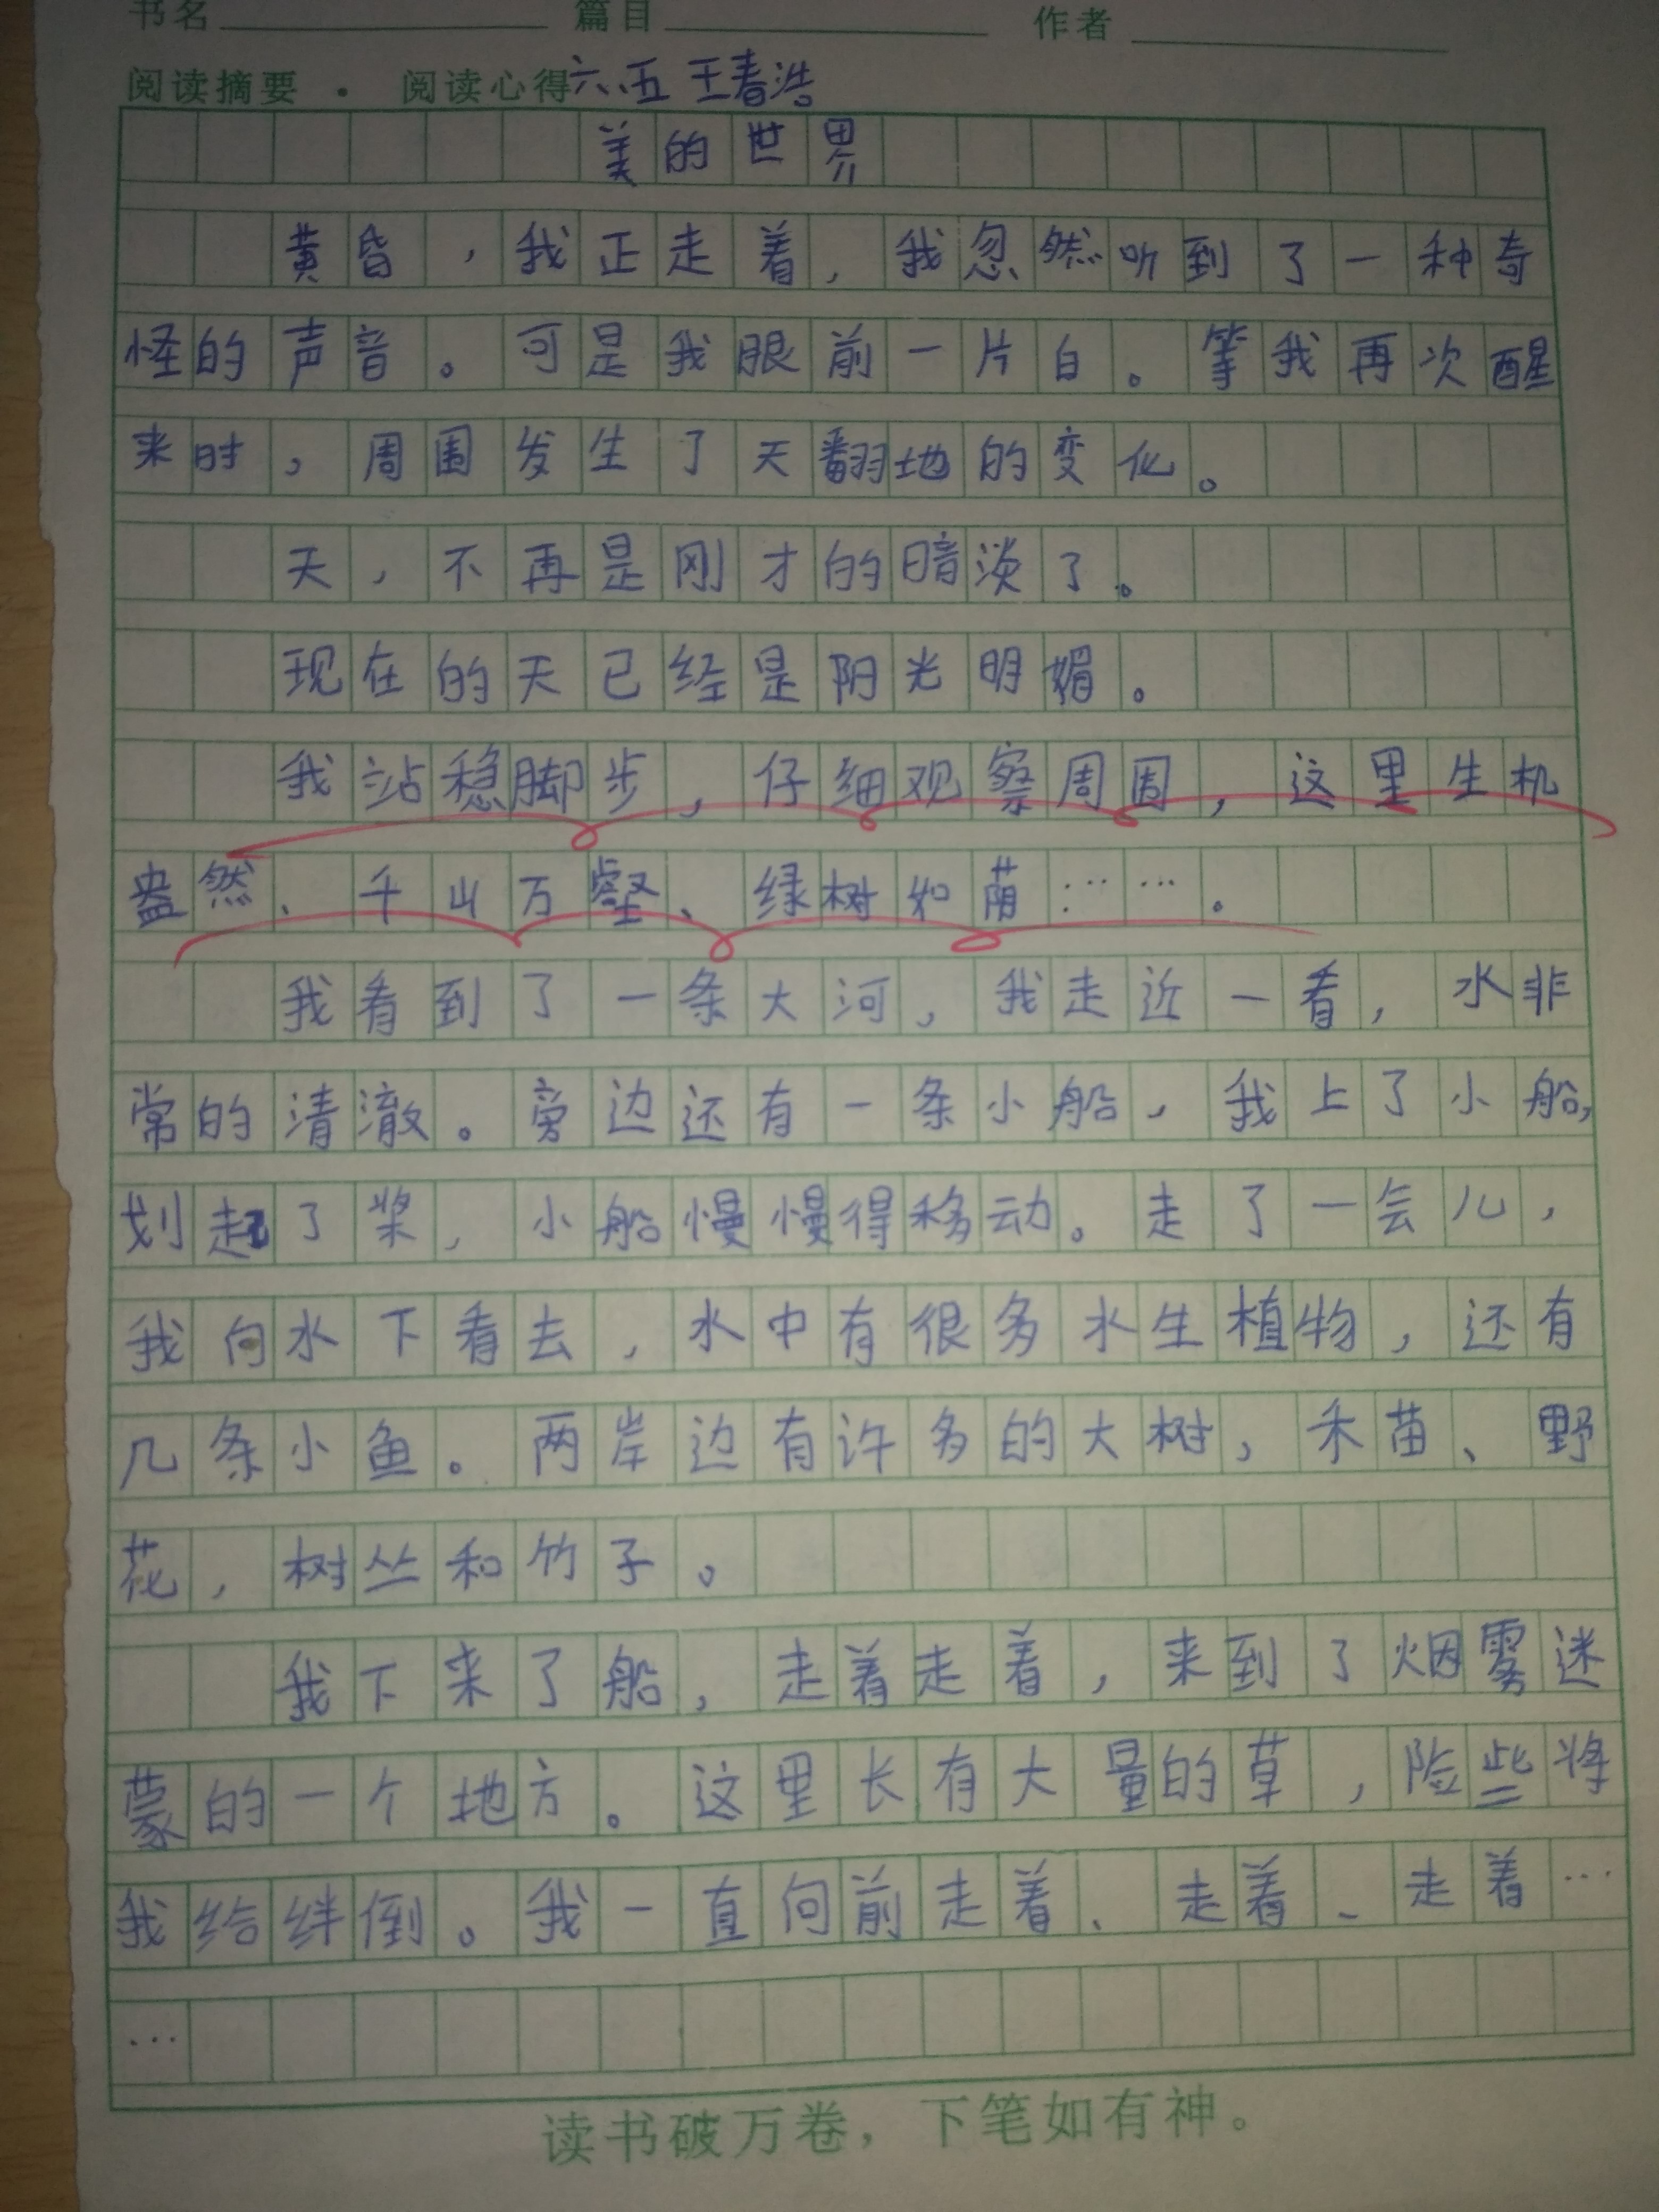 书名 篇目 作者
阅读摘要 · 阅读心得 六、五 王春浩
美的世界
黄昏，我正走着，我忽然听到了一种奇
怪的声音。可是我眼前一片白。等我再次醒
来时，周围发生了天翻地的变化。
天，不再是刚才的暗淡了。
现在的天已经是阴光明媚。
我站稳脚步，仔细观察周围，这里生机
盎然、千山万壑、绿树如荫……。
我看到了一条大河，我走近一看，水非
常的清澈。旁边还有一条小船，我上了小船，
划起了桨，小船慢慢得移动。走了一会儿，
我向水下看去，水中有很多水生植物，还有
几条小鱼。两岸边有许多的大树，禾苗、野
花，树丛和竹子。
我下来了船，走着走着，来到了烟雾迷
蒙的一个地方。这里长有大量的草，险些将
我给绊倒。我一直向前走着、走着、走着…
…
读书破万卷，下笔如有神。